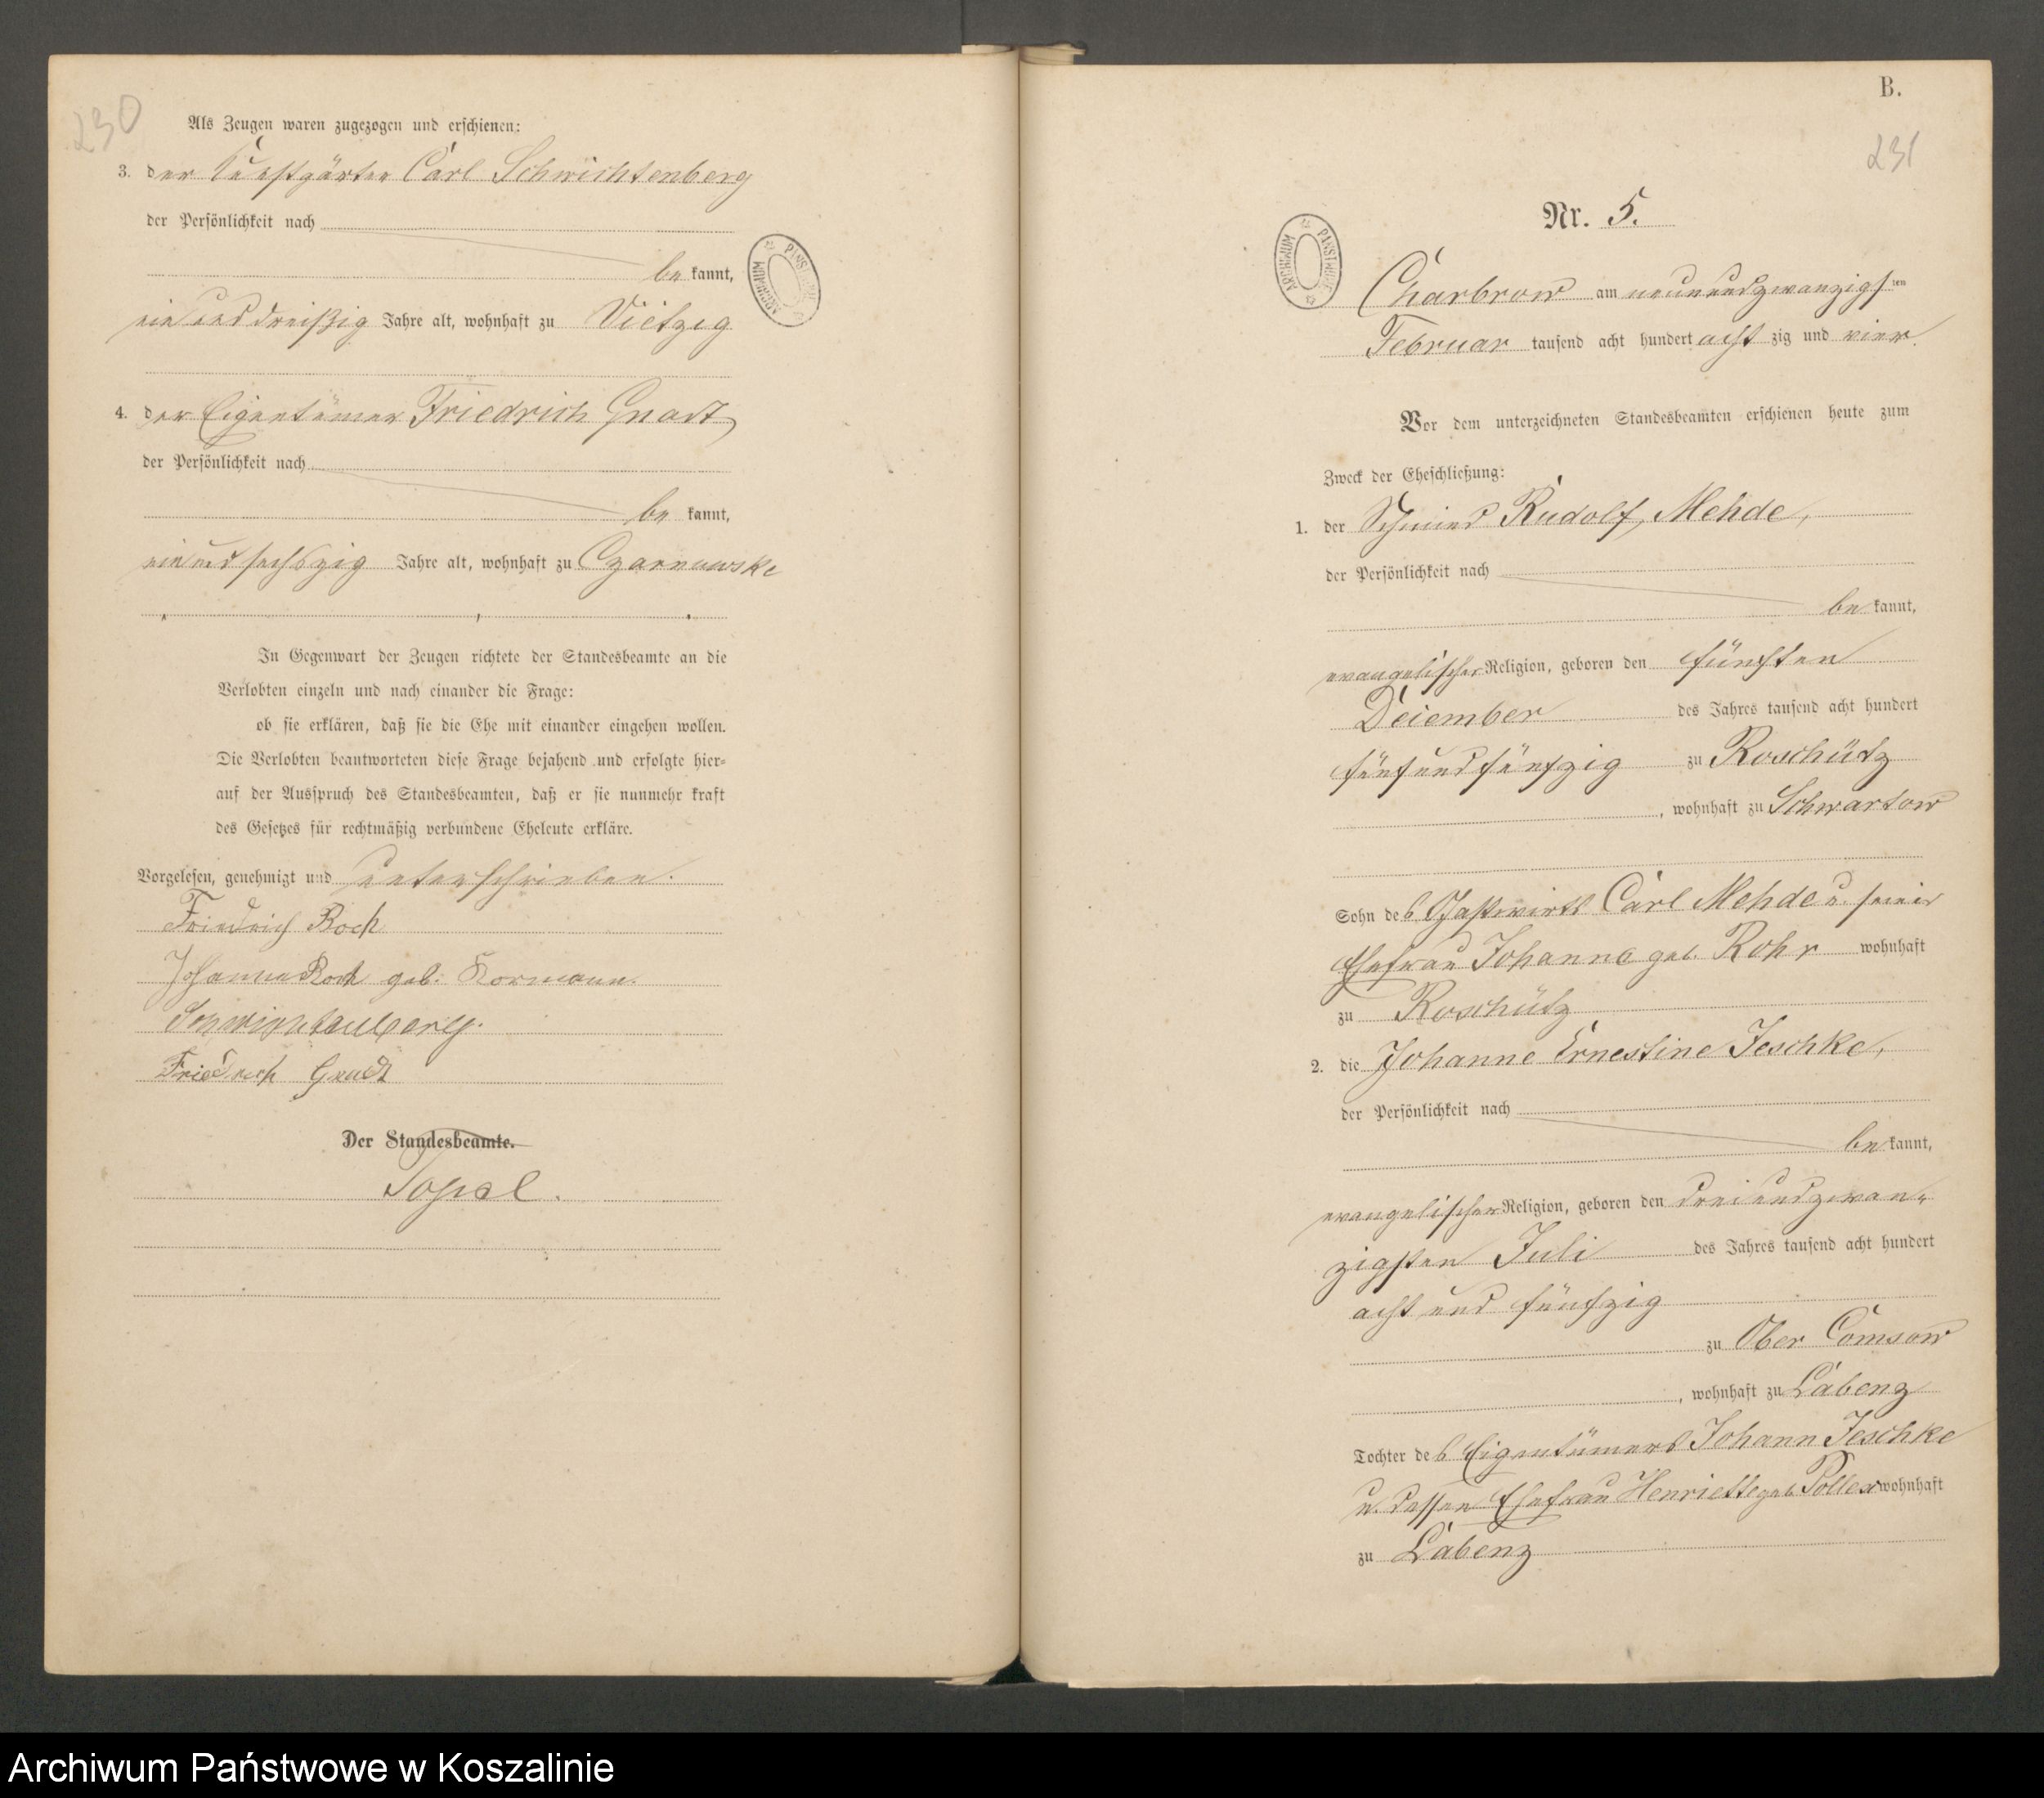 230
Als Zeugen waren zugezogen und erschienen:
3. der Kunstgärtner Carl Schwichtenberg
der Persönlichkeit nach
be kannt,
ein und dreißig Jahre alt, wohnhaft zu Vietzig
4. der Eigentümer Friedrich Gnadt
der Persönlichkeit nach
be kannt,
ein und sechszig Jahre alt, wohnhaft zu Czarnowske
In Gegenwart der Zeugen richtete der Standesbeamte an die
Verlobten einzeln und nach einander die Frage:
ob sie erklären, daß sie die Ehe mit einander eingehen wollen.
Die Verlobten beantworteten diese Frage bejahend und erfolgte hier=
auf der Ausspruch des Standesbeamten, daß er sie nunmehr kraft
des Gesetzes für rechtmäßig verbundene Eheleute erkläre.
Vorgelesen, genehmigt und unterschrieben.
Friedrich Rock
Johanna Rock geb. Kormann.
Schwichtenberg.
Friedrich Gnadt
Der Standesbeamte.
B.
231
Nr. 5.
Charbrow am neunundzwanzigsten
Februar tausend acht hundert acht zig und vier.
Vor dem unterzeichneten Standesbeamten erschienen heute zum
Zweck der Eheschließung:
1. der Schmied Rudolf Mehde,
der Persönlichkeit nach
be kannt,
evangelischer Religion, geboren den fünften
Dezember des Jahres tausend acht hundert
fünf und fünfzig zu Roschütz
, wohnhaft zu Schwartow
Sohn des Gastwirts Carl Mehde u. seiner
Ehefrau Johanne geb. Rohr wohnhaft
zu Roschütz
2. die Johanne Ernestine Jeschke,
der Persönlichkeit nach
be kannt,
evangelischer Religion, geboren den drei und zwan=
zigsten Juli des Jahres tausend acht hundert
acht und fünfzig
zu Ober Comsow
, wohnhaft zu Labenz
Tochter des Eigentümers Johann Jeschke
u. dessen Ehefrau Henriette geb. Pollex wohnhaft
zu Labenz
ARCHIWUM PAŃSTWOWE
Archiwum Państwowe w Koszalinie